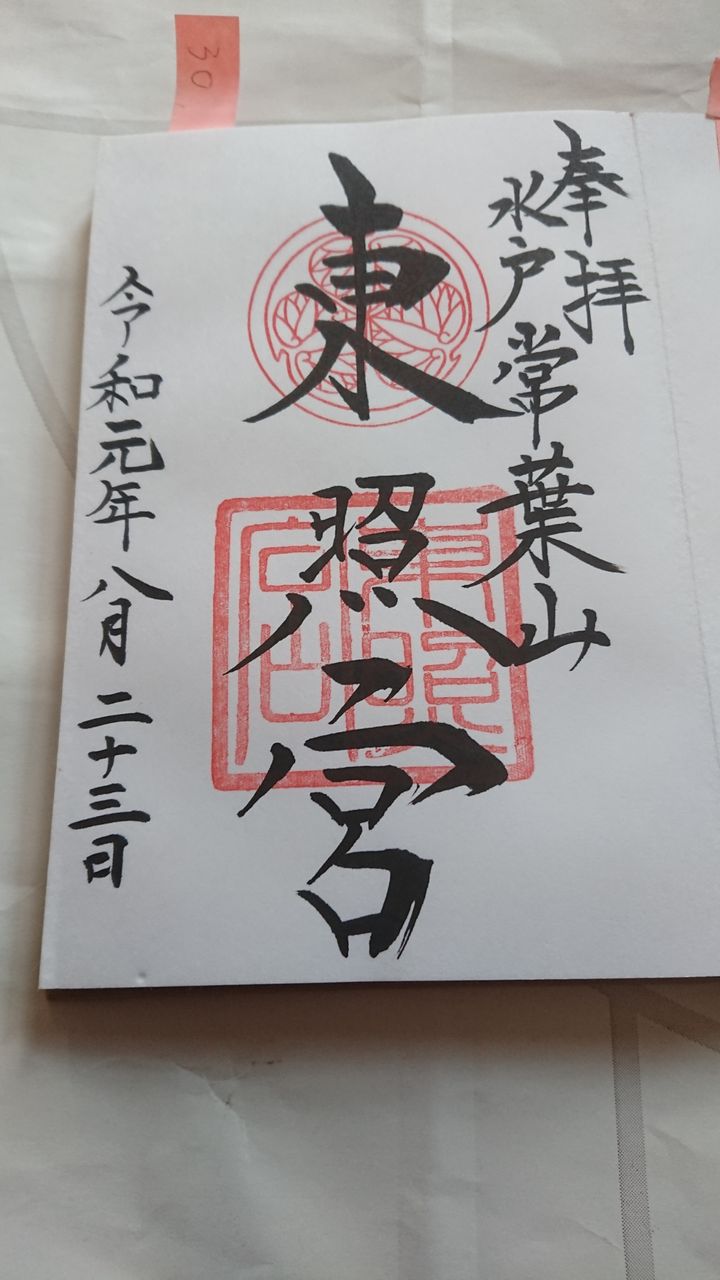 奉拝
水戸常葉山
東照宮
令和元年八月二十三日
30
東照
宮山